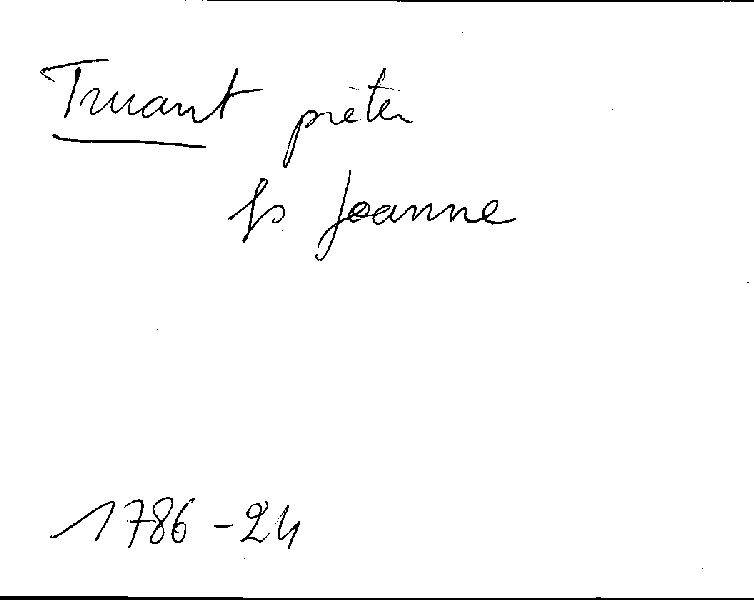 Truant prêter
fs Jeanne
1786-24